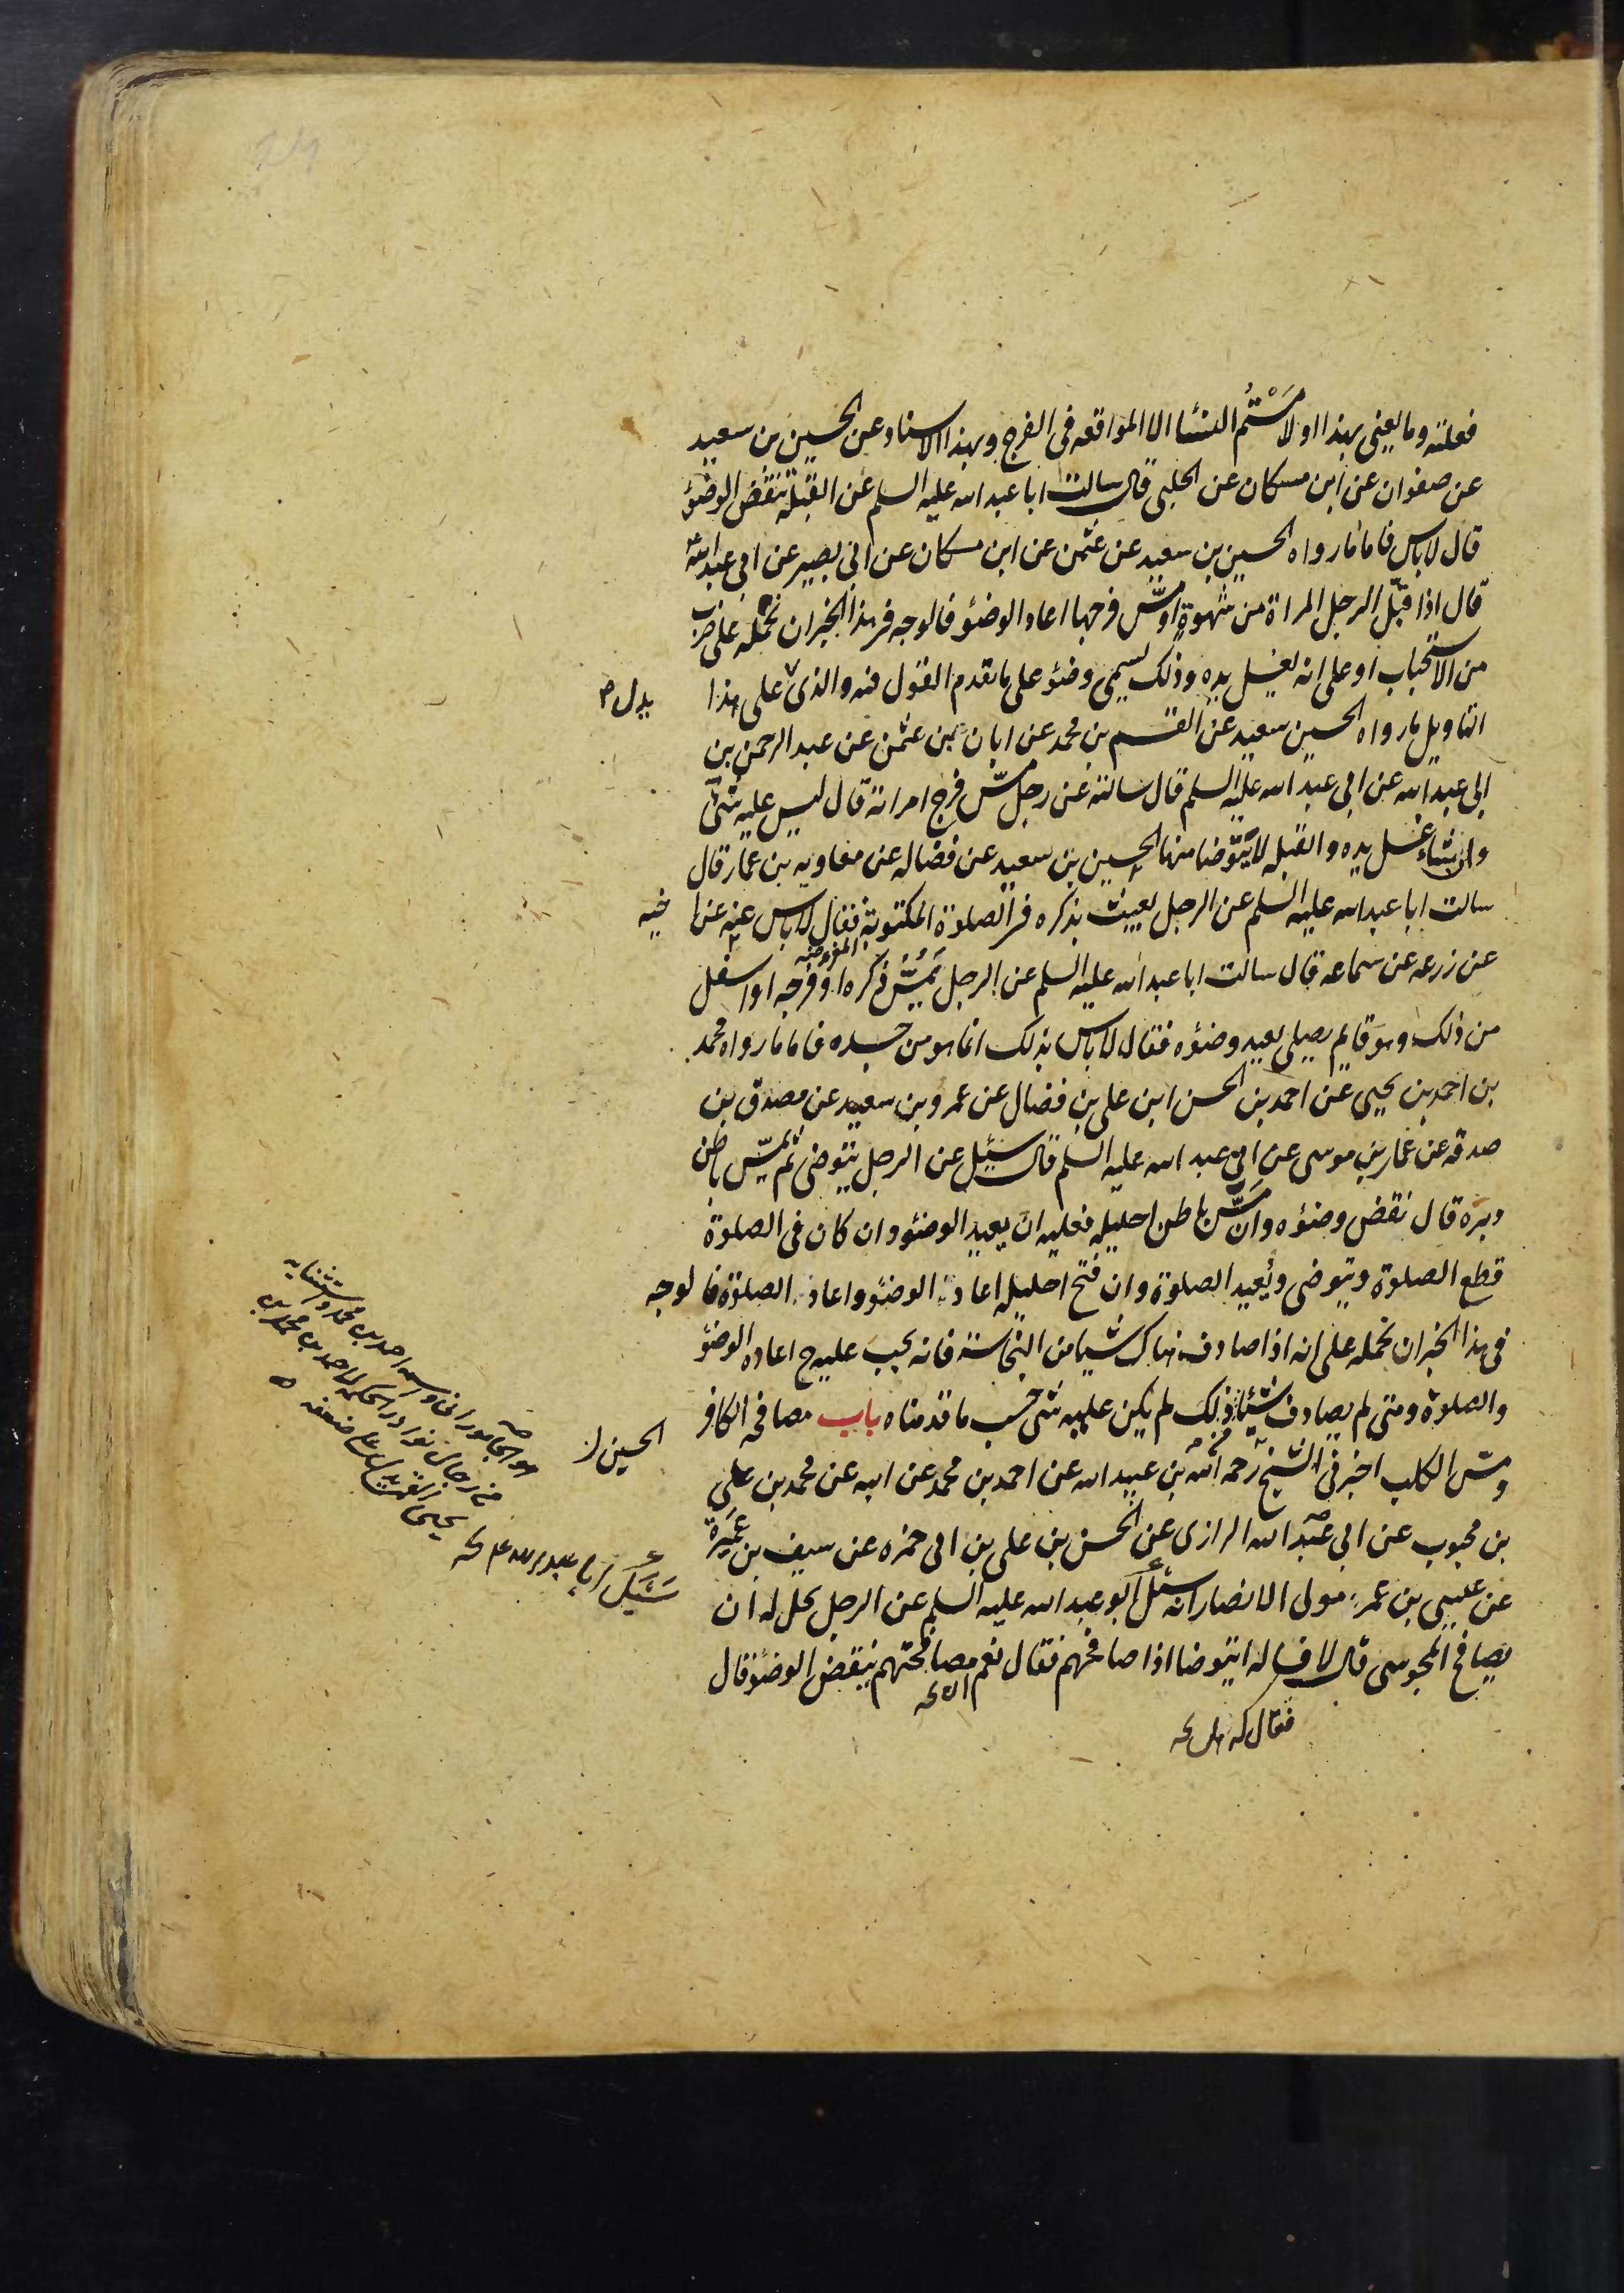 فعلته وما يعنى بهذا او لامَسْتُم النساء الا المواقعه فى الفرج وبهذا الاسناد عن الحسين بن سعيد
عن صفوان عن ابن مسكان عن الحلبى قال سالت ابا عبد الله عليه السلم عن القبلة تنقض الوضوء
قال لا باس فاما ما رواه الحسين بن سعيد عن عثمن عن ابن مسكان عن ابى بصير عن ابى عبد الله
قال اذا قبّل الرجل المراة من شهوة او مسّ فرجها اعاد الوضوء فالوجه فى هذا الخبر ان نحمله على ضرب
من الاستحباب او على انه يغسل يده وذلك يسمى وضوء على ما تقدم القول فيه والذى على هذا
يدل
التاويل ما رواه الحسين سعيد عن القسم بن محمد عن ابان بن عثمن عن عبد الرحمن بن
ابى عبد الله عن ابى عبد الله عليه السلم قال سالته عن رجل مسّ فرج امراته قال ليس عليه شئ
وان شاء غسل يده والقبله لا يتوضا منها الحسين بن سعيد عن فضاله عن معاويه بن عمار قال
سالت ابا عبد الله عليه السلم عن الرجل يعبث بذكره فى الصلوة المكتوبة فقال لا باس عنه عن
اخيه
عن زرعه عن سماعه قال سالت ابا عبد الله عليه السلم عن الرجل يَمَسُّ ذكره او فرجه او اسفل
من ذلك وهو قايم يصلى يعيد وضوءه فقال لا باس بذلك انما هو من جسده فاما ما رواه محمد
بن احمد بن يحيى عن احمد بن الحسن ابن على بن فضال عن عمرو بن سعيد عن مصدق بن
صدقه عن عمار بن موسى عن ابى عبد الله عليه السلم قال سئل عن الرجل يتوضى ثم يمسّ باطن
دبره قال نقض وضوءه وان مسّ باطن احليله فعليه ان يعيد الوضوء وان كان فى الصلوة
قطع الصلوة ويتوضى ويعيد الصلوة وان فتح احليله اعاد الوضوء واعاد الصلوة فالوجه
فى هذا الخبر ان نحمله على انه اذا صادف هناك شيا من النجاسة فانه يجب عليه ح اعاده الوضوء
والصلوة ومتى لم يصادف شيئا ذلك لم يكن عليه شى حسب ما قدمناه باب مصافحه الكافر
ومسّ الكلب اخبرنى الشيخ رحمه الله بن عبيد الله عن احمد بن محمد عن ابيه عن محمد بن على
الحسين
بن محبوب عن ابى عبد الله الرازى عن الحسن بن على بن ابى حمزه عن سيف بن عَمِيرَة
عن عيسى بن عمر مولى الانصار انه سئل ابو عبد الله عليه السلم عن الرجل يحل له ان
يصافح المجوسى قال لا فساله ايتوضا اذا صافحهم فقال نعم مصافحتهم ينقض الوضوء قال
فقال له